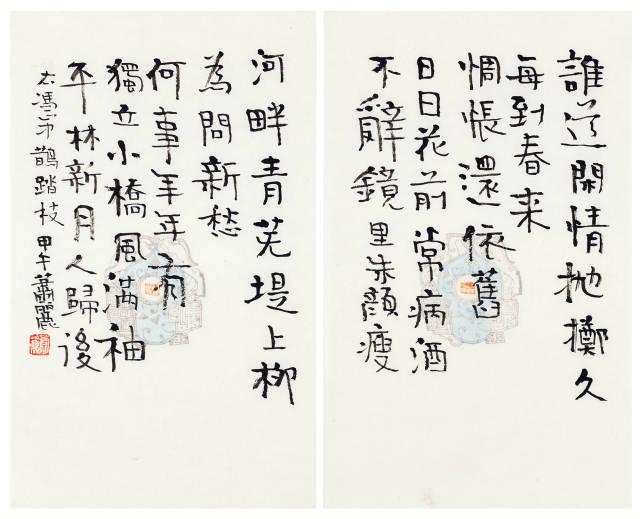 誰道閑情抛擲久
每到春来
惆悵還依舊
日日花前常病酒
不辭鏡里朱顏瘦
河畔青芜堤上柳
為問新愁
何事年年有
獨立小橋風满袖
平林新月人歸後
馮鹊踏枝 甲午蕭麗